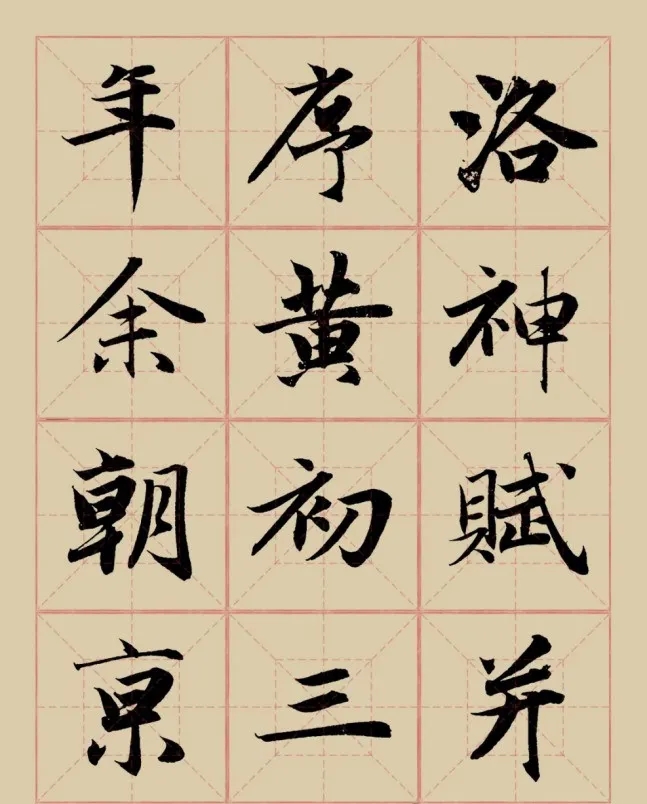 洛神賦并
序黄初三
年余朝京